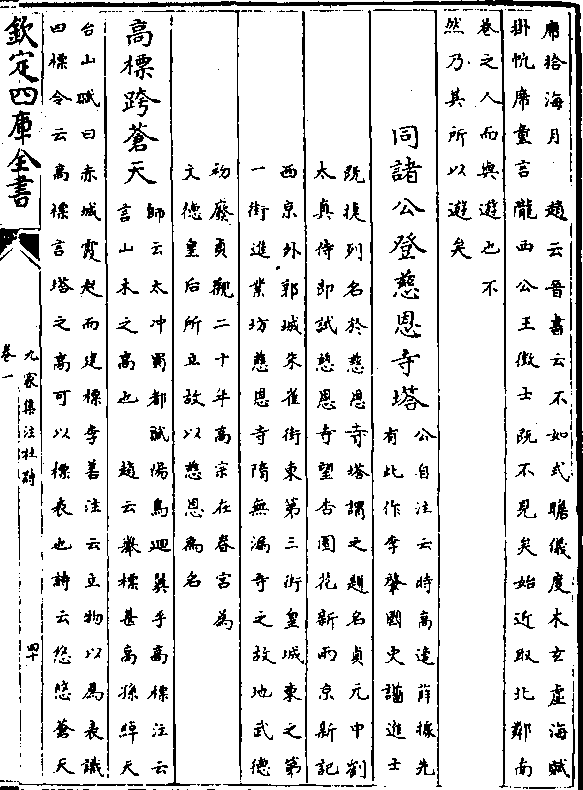 席拾海月　趙云晉書云不如式瞻儀度木玄虛海賦
掛帆席董言隴西公王徵士既不見矣始近取北鄰南
巷之人而與遊也不
然乃其所以遊矣
同諸公登慈恩寺塔
公自注云時高適薛據先
有此作李肇國史譜進士
既捷列名於慈恩寺塔謂之題名貞元中劉
太真侍郎試慈恩寺望杏園花新雨京新記
西京外郭城朱雀街東第三街皇城東之第
一街進業坊慈恩寺隋無漏寺之故地武德
初廢貞觀二十年高宗在春宮為
文德皇后所立故以慈恩為名
高標跨蒼天
師云太冲蜀都賦陽烏迴翼乎高標注云
言山木之高也　趙云嚴標甚高孫綽天
台山賦曰赤城霞起而建標李善注云立物以為表識
四標令云高標言塔之高可以標表也詩云悠悠蒼天
欽定四庫全書
九家集注杜詩
卷一
四十